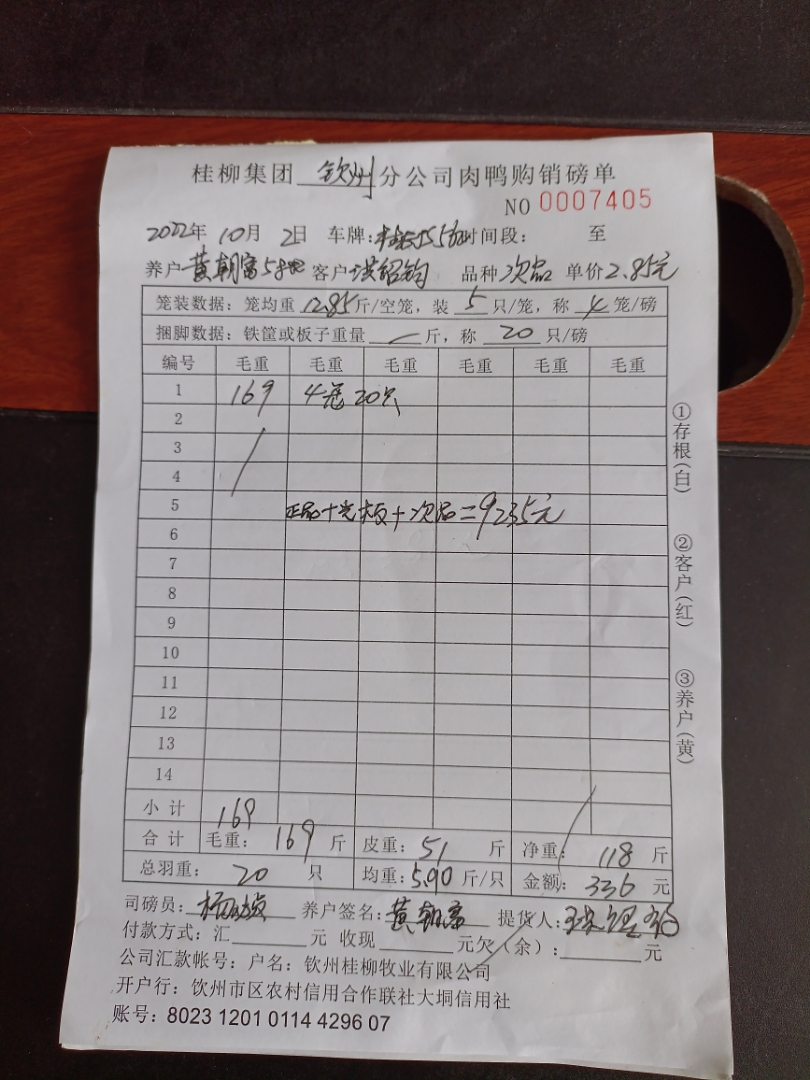 桂柳集团 钦州 分公司肉鸭购销磅单
NO 0007405
2022年 10月 2日 车牌: 时间段: 至
养户 黄朝富 客户 洪绍钧 品种 次品 单价 2.85元
笼装数据: 笼均重 12.85 斤/空笼, 装 5 只/笼, 称 4 笼/磅
捆脚数据: 铁筐或板子重量 斤, 称 20 只/磅
编号 毛重 毛重 毛重 毛重 毛重 毛重
1 169 4笼 20只
2
3
4
5 正品+光板+次品=9235元
6
7
8
9
10
11
12
13
14
小计 169
合计 毛重: 169 斤 皮重: 51 斤 净重: 118 斤
总羽重: 20 只 均重: 5.90 斤/只 金额: 336 元
司磅员: 养户签名: 黄朝富 提货人:
付款方式: 汇 元 收现 元欠(余): 元
公司汇款帐号: 户名: 钦州桂柳牧业有限公司
开户行: 饮州市区农村信用合作联社大垌信用社
账号: 8023 1201 0114 4296 07
①存根(白)
②客户(红)
③养户(黄)